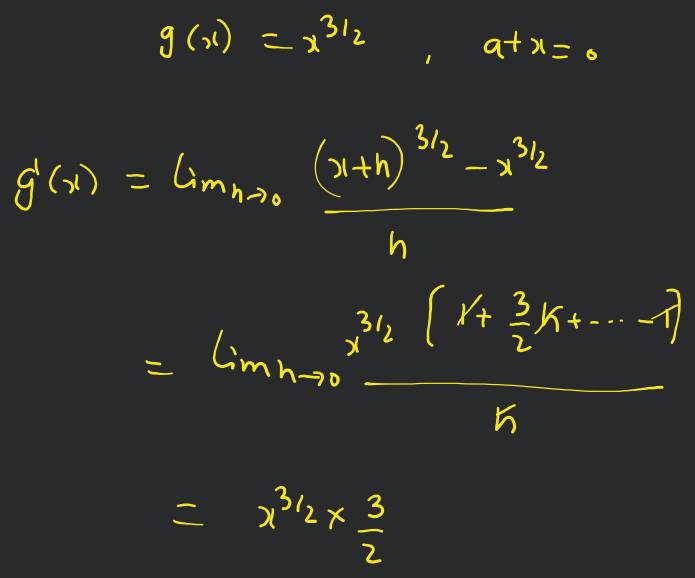 g(x) = x^{3/2} , at x = 0
g'(x) = Lim_{h→0} \frac{(x+h)^{3/2} - x^{3/2}}{h}
= Lim_{h→0} \frac{x^{3/2} [1 + \frac{3}{2} h + ---- - 1]}{h}
= x^{3/2} × \frac{3}{2}